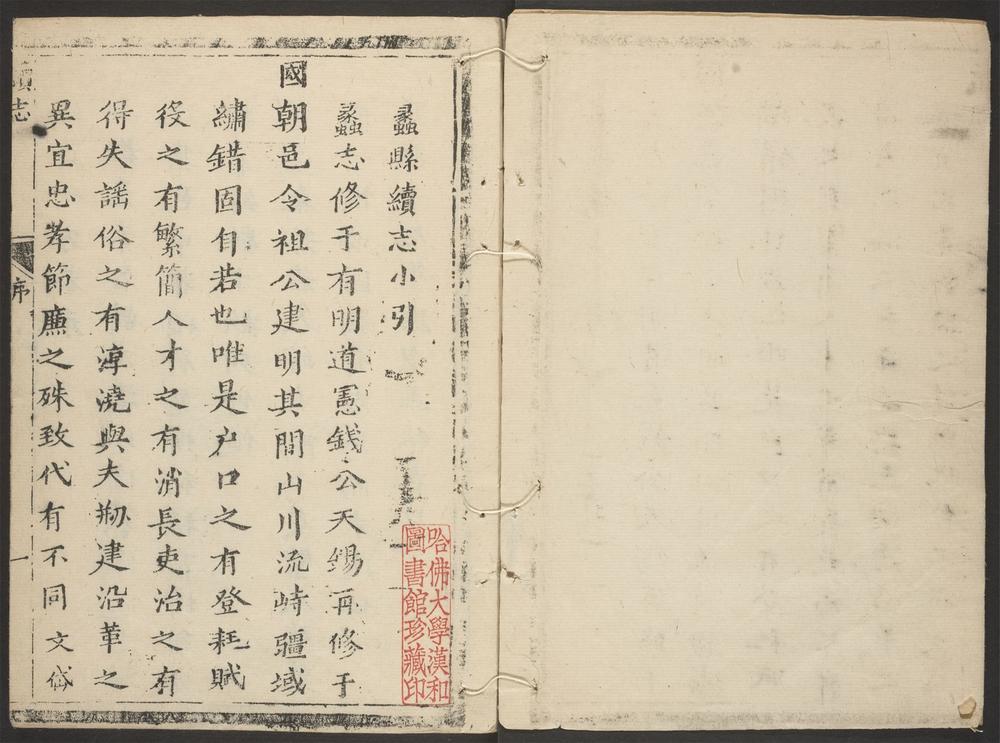 蠡縣續志小引
蠡志修于有明道憲錢公天錫再修于
國朝邑令祖公建明其間山川流峙疆域
繡錯固自若也唯是户口之有登耗賦
役之有繁簡人才之有消長吏治之有
得失謡俗之有淳澆與夫剏建沿革之
異宜忠孝節廉之殊致代有不同文
志
序
一
哈佛大學漢和
圖書館珍藏印